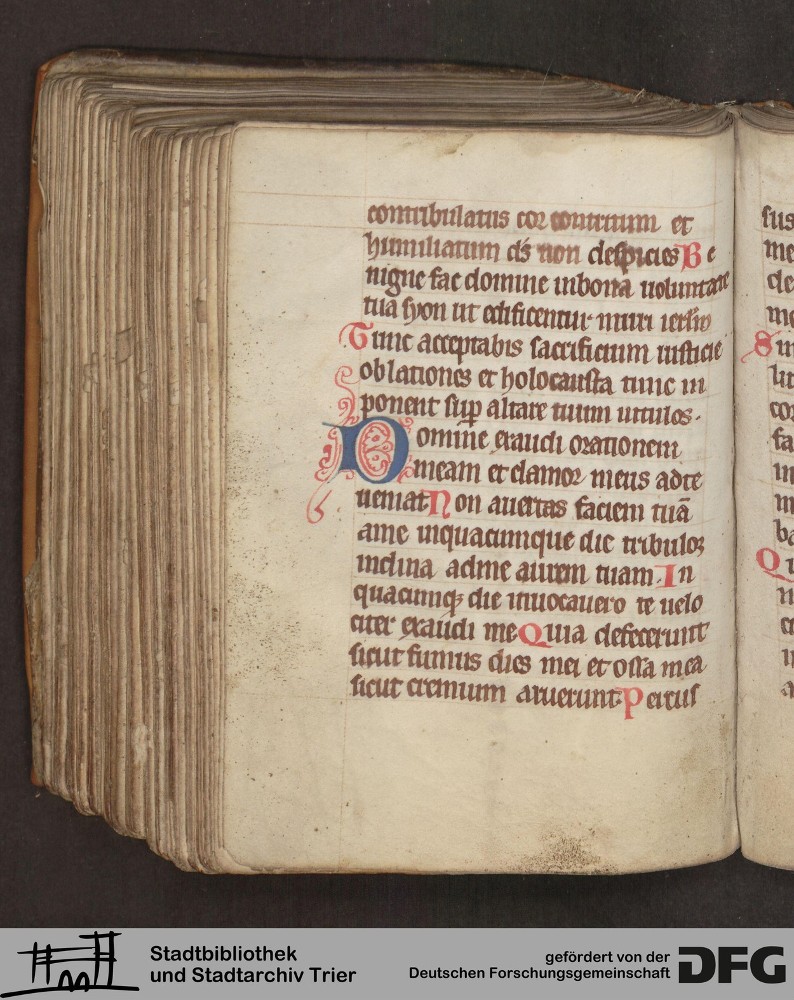 contribulatus cor contritum et
humiliatum ds non despicies Be
nigne fac domine inbona uoluntate
tua syon ut edificentur muri ierlm
Tunc acceptabis sacrificium iusticie
oblationes et holocausta tunc in
ponent sup altare tuum uitulos.
Domine exaudi orationem
meam et clamor meus adte
ueniat Non auertas faciem tuā
ame inquacumque die tribulor
inclina adme aurem tuam. In
quacumq; die inuocauero te uelo
citer exaudi me Quia defecerunt
sicut fumus dies mei et ossa mea
sicut cremium aruerunt Percus
sus
me
de
me
Si
lit
cor
fa
in
ba
Qu
Stadtbibliothek
und Stadtarchiv Trier
gefördert von der
Deutschen Forschungsgemeinschaft
DFG